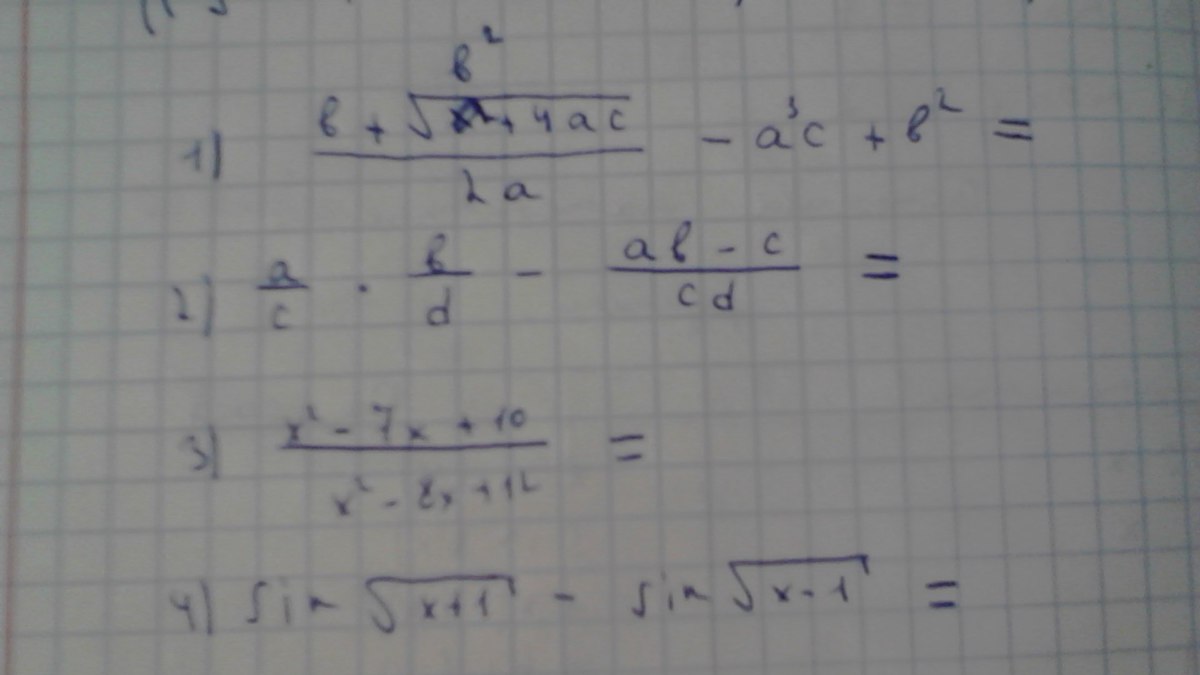 1) (в + √(в² + 4ac)) / 2a - a³c + в² =
2) a/c · в/d - (aв - c)/cd =
3) (x² - 7x + 10) / (x² - 8x + 12) =
4) sin √(x+1) - sin √(x-1) =